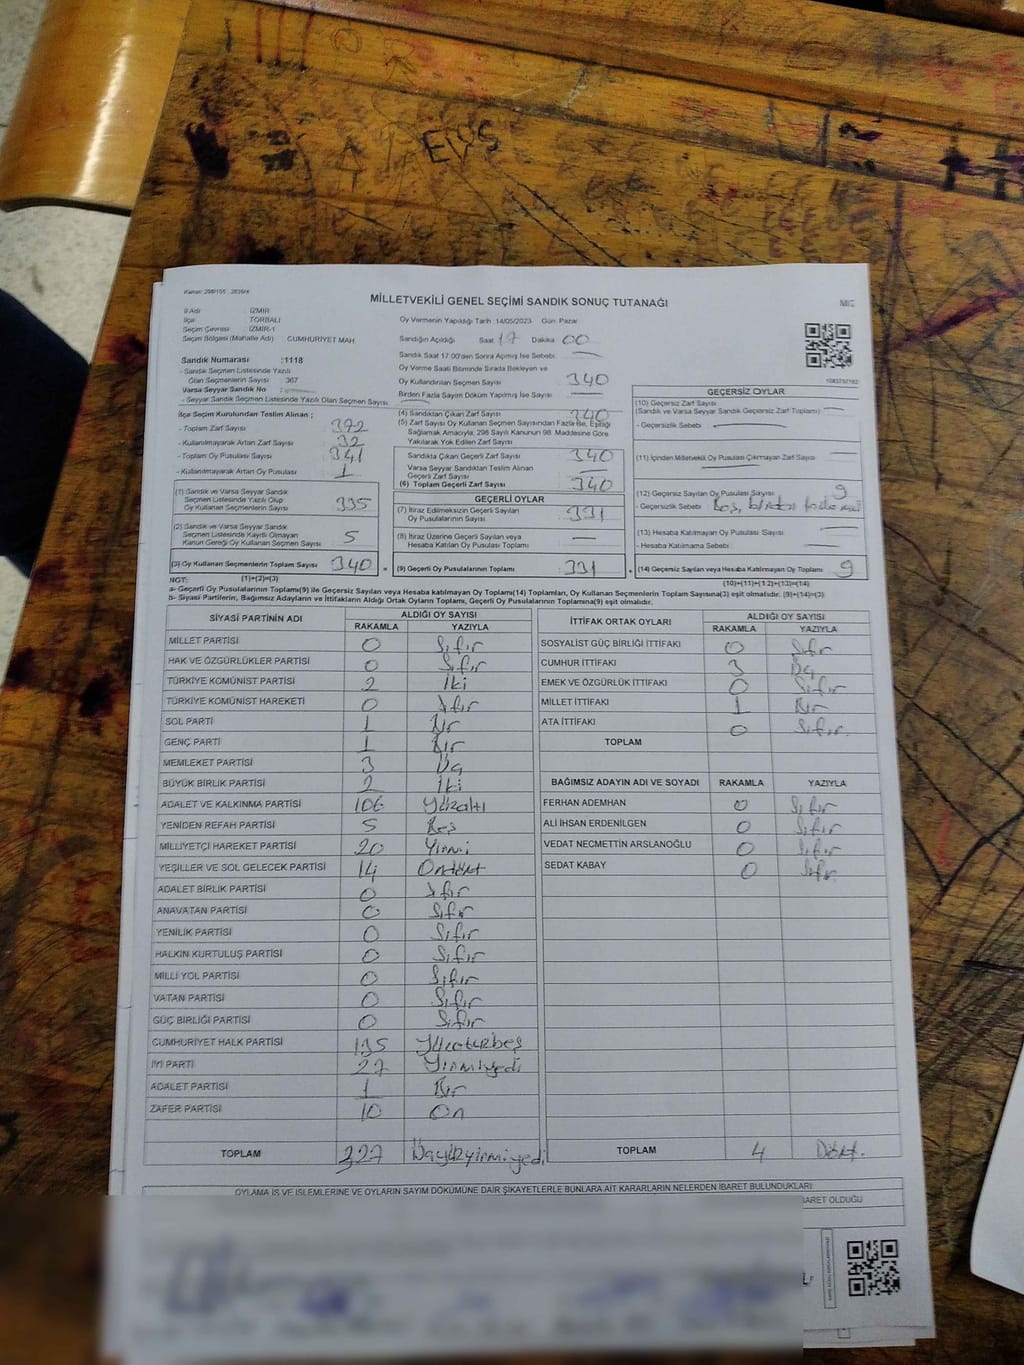 EVS
MİLLETVEKİLİ GENEL SEÇİMİ SANDIK SONUÇ TUTANAĞI
İl Adı İZMİR
İlçe TORBALI
Seçim Çevresi İZMİR-1
Seçim Bölgesi (Mahalle Adı) CUMHURİYET MAH.
Oy Vermenin Yapıldığı Tarih :14/05/2023 Gün: Pazar
Sandığın Açıldığı Saat 17 Dakika 00
Sandık Saat 17.00'den Sonra Açmış İse Sebebi:
Sandık Numarası :1118
- Sandık Seçmen Listesinde Yazılı
Olan Seçmenlerin Sayısı : 367
Varsa Seyyar Sandık No :
- Seyyar Sandık Seçmen Listesinde Yazılı Olan Seçmen Sayısı
Oy Verme Saati Bitiminde Sırada Bekleyen ve
Oy Kullandırılan Seçmen Sayısı 340
Birden Fazla Sayım Döküm Yapılmış İse Sayısı
İlçe Seçim Kurulundan Teslim Alınan ;
- Toplam Zarf Sayısı 372
- Kullanılmayarak Artan Zarf Sayısı 32
- Toplam Oy Pusulası Sayısı 341
- Kullanılmayarak Artan Oy Pusulası 1
(4) Sandıktan Çıkan Zarf Sayısı 340
(5) Zarf Sayısı Oy Kullanan Seçmen Sayısından Fazla İse, Eşitliği
Sağlamak Amacıyla; 298 Sayılı Kanunun 98. Maddesine Göre
Yakılarak Yok Edilen Zarf Sayısı
Sandıkta Çıkan Geçerli Zarf Sayısı 340
Varsa Seyyar Sandıktan Teslim Alınan
Geçerli Zarf Sayısı
(6) Toplam Geçerli Zarf Sayısı 340
(1) Sandık ve Varsa Seyyar Sandık
Seçmen Listesinde Yazılı Olup
Oy Kullanan Seçmenlerin Sayısı 335
(2) Sandık ve Varsa Seyyar Sandık
Seçmen Listesinde Kayıtlı Olmayan
Kanun Gereği Oy Kullanan Seçmen Sayısı 5
(3) Oy Kullanan Seçmenlerin Toplam Sayısı 340
GEÇERLİ OYLAR
(7) İtiraz Edilmeksizin Geçerli Sayılan
Oy Pusulalarının Sayısı 331
(8) İtiraz Üzerine Geçerli Sayılan veya
Hesaba Katılan Oy Pusulası Toplamı
(9) Geçerli Oy Pusulalarının Toplamı 331
GEÇERSİZ OYLAR
(10) Geçersiz Zarf Sayısı
(Sandık ve Varsa Seyyar Sandık Geçersiz Zarf Toplamı)
- Geçersizlik Sebebi
(11) İçinden Milletvekili Oy Pusulası Çıkmayan Zarf Sayısı
(12) Geçersiz Sayılan Oy Pusulası Sayısı 9
- Geçersizlik Sebebi Boş, birden
(13) Hesaba Katılmayan Oy Pusulası Sayısı
- Hesaba Katılmama Sebebi
(14) Geçersiz Sayılan veya Hesaba Katılmayan Oy Toplamı 9
NOT: (1)+(2)=(3) (10)+(11)+(12)+(13)=(14)
a- Geçerli Oy Pusulalarının Toplamı(9) ile Geçersiz Sayılan veya Hesaba Katılmayan Oy Toplamı(14) Toplamları, Oy Kullanan Seçmenlerin Toplam Sayısına(3) eşit olmalıdır. (9)+(14)=(3)
b- Siyasi Partilerin, Bağımsız Adayların ve İttifakların Aldığı Ortak Oyların Toplamı, Geçerli Oy Pusulalarının Toplamına(9) eşit olmalıdır.
SİYASİ PARTİNİN ADI ALDIĞI OY SAYISI
RAKAMLA YAZIYLA
MİLLET PARTİSİ 0 Sıfır
HAK VE ÖZGÜRLÜKLER PARTİSİ 0 Sıfır
TÜRKİYE KOMÜNİST PARTİSİ 2 İki
TÜRKİYE KOMÜNİST HAREKETİ 0 Sıfır
SOL PARTİ 1 Bir
GENÇ PARTİ 1 Bir
MEMLEKET PARTİSİ 3 Üç
BÜYÜK BİRLİK PARTİSİ 2 İki
ADALET VE KALKINMA PARTİSİ 106 Yüzaltı
YENİDEN REFAH PARTİSİ 5 Beş
MİLLİYETÇİ HAREKET PARTİSİ 20 Yirmi
YEŞİLLER VE SOL GELECEK PARTİSİ 14 Ondört
ADALET BİRLİK PARTİSİ 0 Sıfır
ANAVATAN PARTİSİ 0 Sıfır
YENİLİK PARTİSİ 0 Sıfır
HALKIN KURTULUŞ PARTİSİ 0 Sıfır
MİLLİ YOL PARTİSİ 0 Sıfır
VATAN PARTİSİ 0 Sıfır
GÜÇ BİRLİĞİ PARTİSİ 0 Sıfır
CUMHURİYET HALK PARTİSİ 135 Yüzotuzbeş
İYİ PARTİ 27 Yirmiyedi
ADALET PARTİSİ 1 Bir
ZAFER PARTİSİ 10 On
TOPLAM 327 Üçyüzyirmiyedi
İTTİFAK ORTAK OYLARI ALDIĞI OY SAYISI
RAKAMLA YAZIYLA
SOSYALİST GÜÇ BİRLİĞİ İTTİFAKI 0 Sıfır
CUMHUR İTTİFAKI 3 Üç
EMEK VE ÖZGÜRLÜK İTTİFAKI 0 Sıfır
MİLLET İTTİFAKI 1 Bir
ATA İTTİFAKI 0 Sıfır.
TOPLAM
BAĞIMSIZ ADAYIN ADI VE SOYADI RAKAMLA YAZIYLA
FERHAN ADEMHAN 0 Sıfır
ALİ İHSAN ERDENİLGEN 0 Sıfır
VEDAT NECMETTİN ARSLANOĞLU 0 Sıfır
SEDAT KABAY 0 Sıfır
TOPLAM 4 Dört.
OYLAMA İŞ VE İŞLEMLERİNE VE OYLARIN SAYIM DÖKÜMÜNE DAİR ŞİKAYETLERLE BUNLARA AİT KARARLARIN NELERDEN İBARET BULUNDUKLARI
BARET OLDUĞU